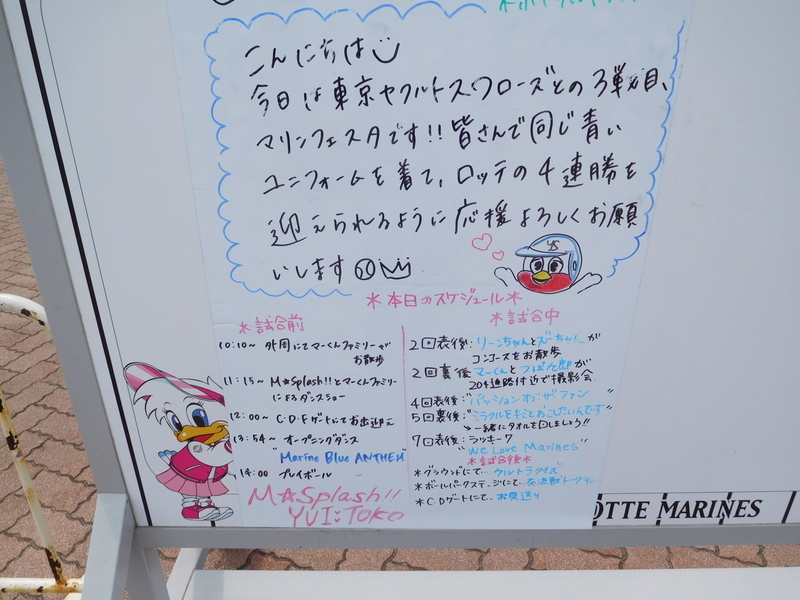 こんにちは
今日は東京ヤクルトスワローズとの3戦目、
マリンフェスタです!!皆さんで同じ青い
ユニフォームを着て、ロッテの4連勝を
迎えられるように応援よろしくお願
いします
YS
*本日のスケジュール*
*試合前
10:10~ 外周にてマーくんファミリーが
お散歩
11:15~ M☆Splash!!とマーくんファミリー
によるダンスショー
12:00~ C・Dゲートにてお出迎え
13:54~ オープニングダンス
"Marine Blue ANTHEM"
14:00 プレイボール
M☆Splash!!
YUI TOKO
*試合中
2回表後:リーンちゃんとズーちゃんが
コンコースをお散歩
2回裏後 マーくんとつば九郎が
204通路付近で撮影会
4回表後:"パッション・オブ・ザ・ファン
5回裏後:"ミラクルをキミとおこしたいんです"
一緒にタオルを回しましょう!!
7回表後:ラッキー7
"We Love Marines"
*試合後*
*グラウンドにて…ウルトラクイズ
*ボールパークステージにて…
*C・Dゲートにて…お見送り
OTTE MARINES